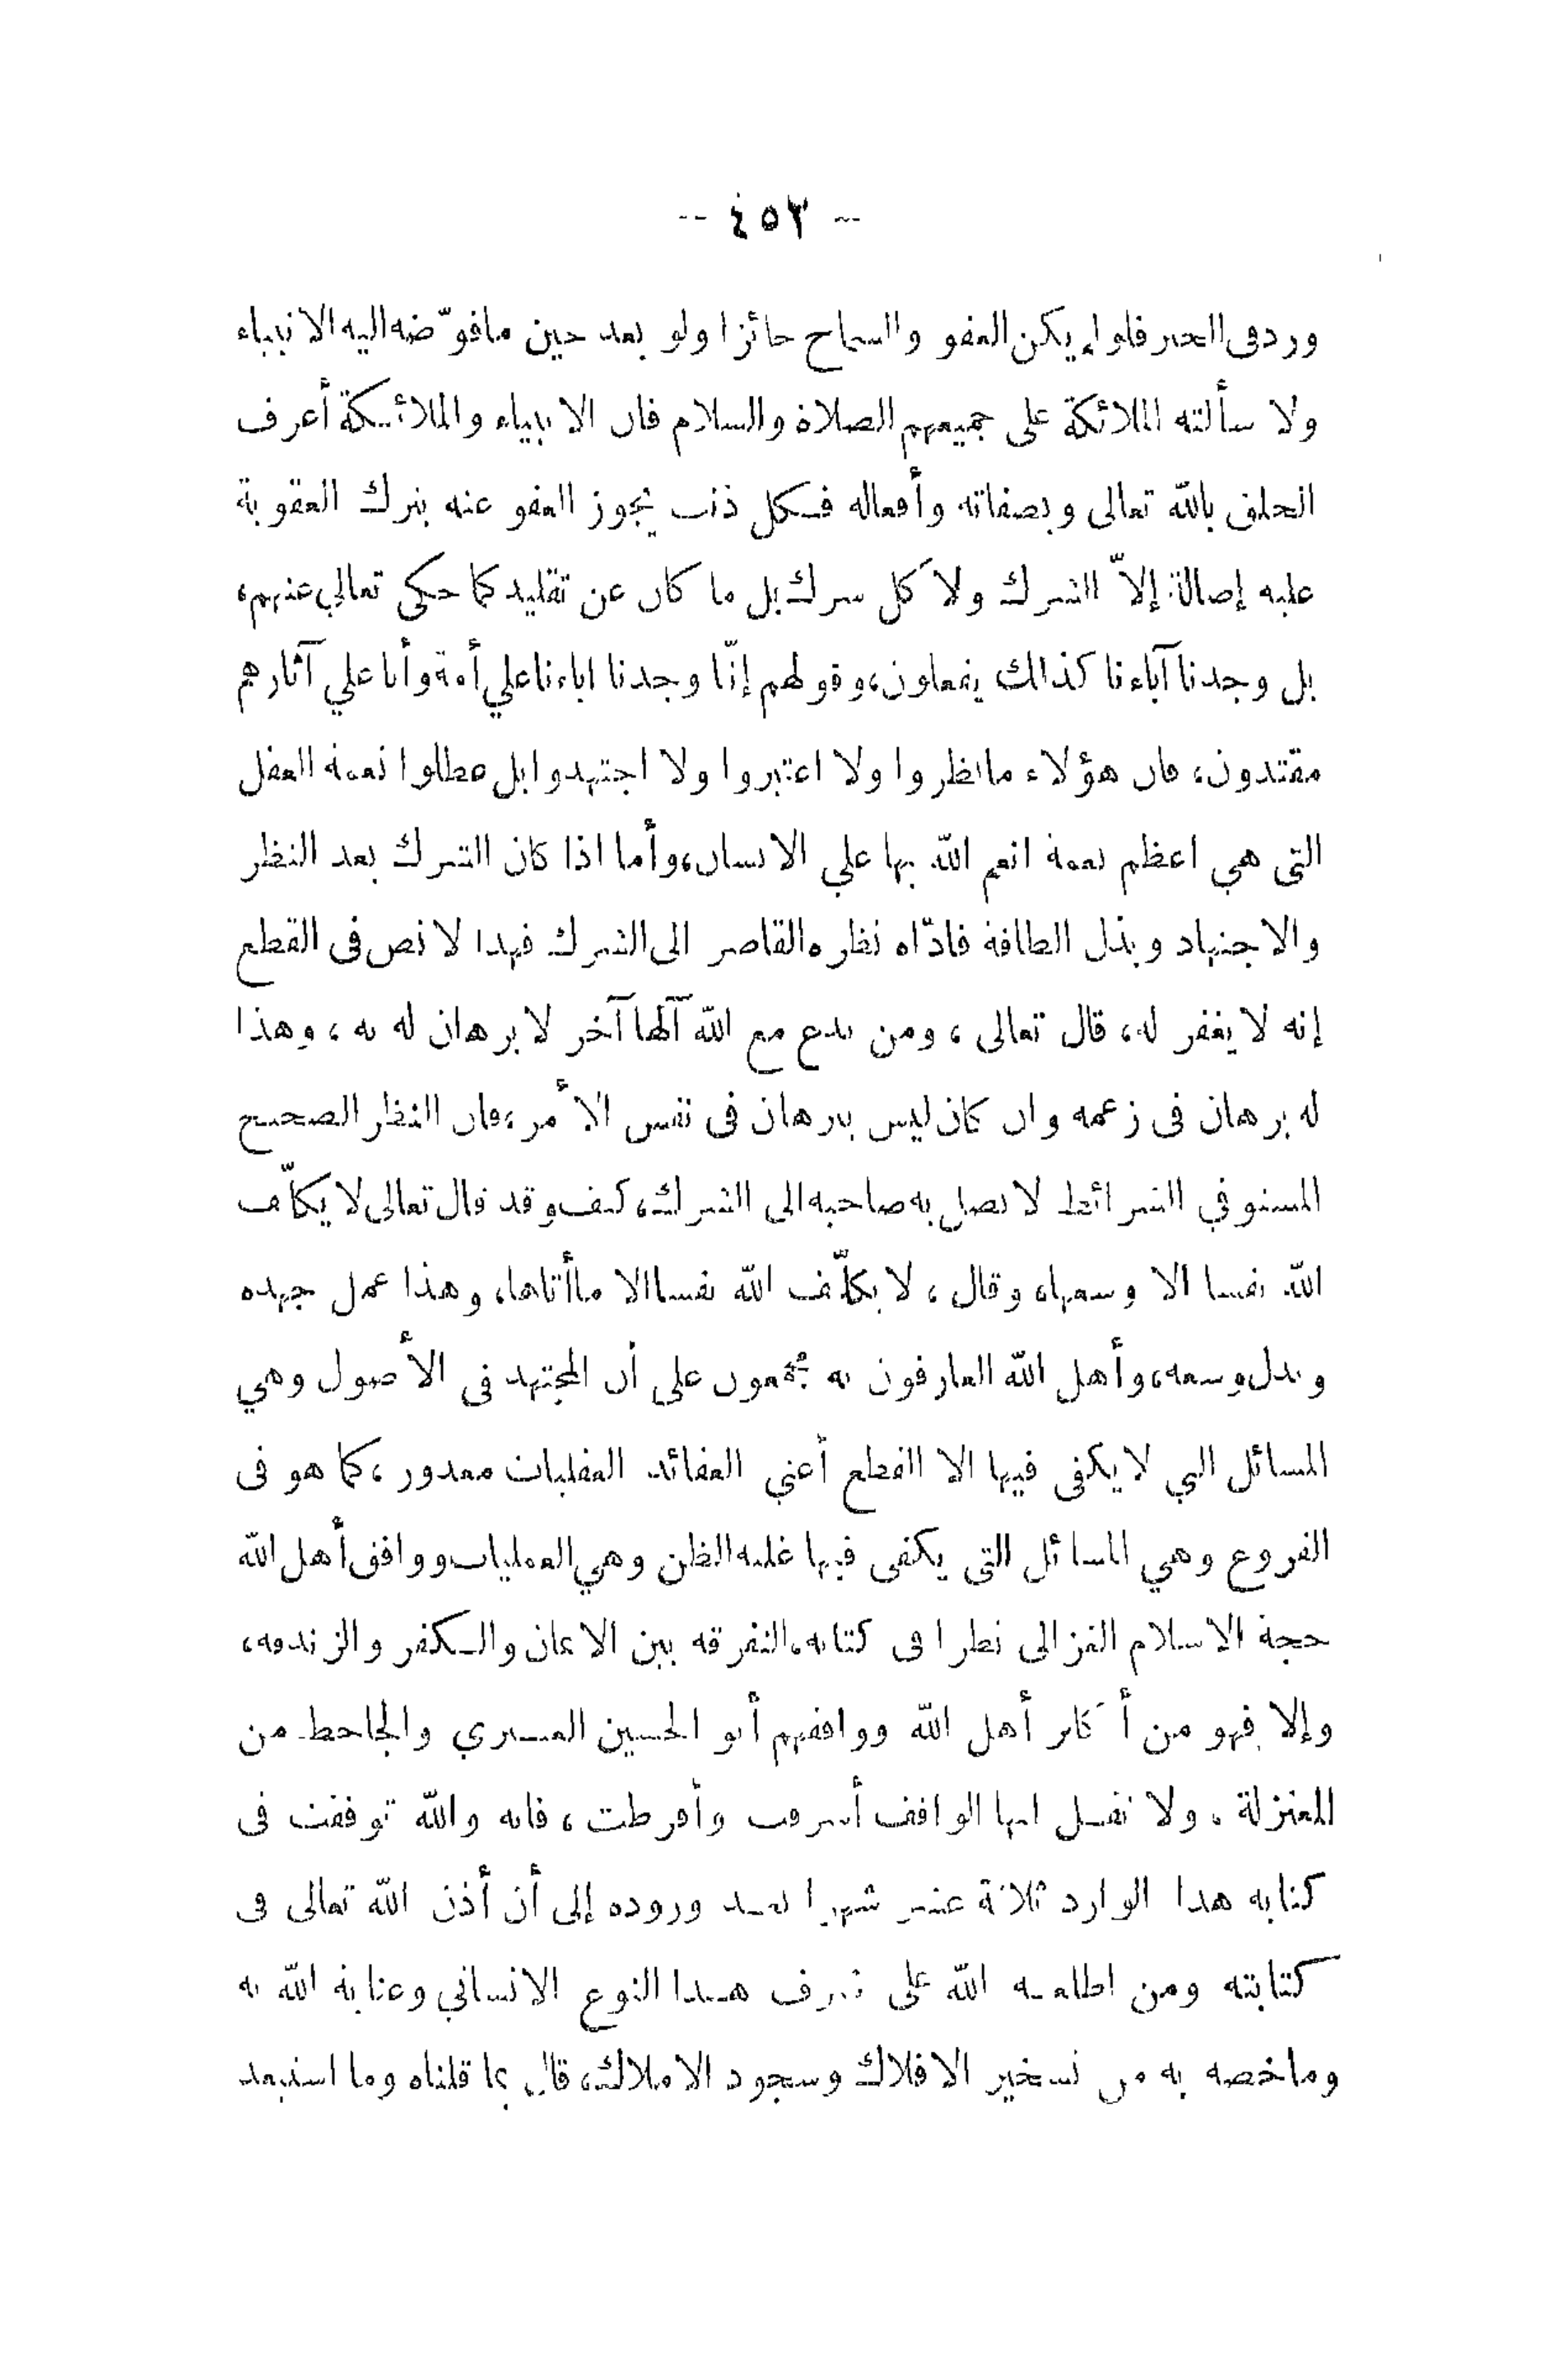 -- ٤٥٣ --
ورد فى الخبر فلو لم يكن العفو والسماح جائزا ولو بعد حين ما فوّضه اليه الانبياء
ولا سألته الملائكة على جميعهم الصلاة والسلام فان الانبياء والملائكة أعرف
الخلق بالله تعالى وبصفاته وأفعاله فكل ذنب يجوز العفو عنه بترك العقوبة
عليه إصالة إلاّ الشرك ولا كل شرك بل ما كان عن تقليد كما حكى تعالي عنهم،
بل وجدنا آباءنا كذالك يفعلون، وقولهم إنّا وجدنا اباءنا علي أمة وأنا علي آثارهم
مقتدون، فان هؤلاء ما نظروا ولا اعتبروا ولا اجتهدوا بل عطلوا نعمة العقل
التى هي اعظم نعمة انعم الله بها علي الانسان، وأما اذا كان الشرك بعد النظر
والاجتهاد وبذل الطاقة فادّاه نظره القاصر الى الشرك فهذا لا نص فى القطع
إنه لا يغفر له، قال تعالى، ومن يدع مع الله آلها آخر لا برهان له به، وهذا
له برهان فى زعمه وان كان ليس ببرهان فى نفس الأمر، فان النظر الصحيح
المستوفي الشرائط لا يصل به صاحبه الى الشرك، كيف وقد قال تعالى لا يكلّف
الله نفسا الا وسعها، وقال، لا يكلّف الله نفسا الا ما أتاها، وهذا عمل جهده
وبذل وسعه، وأهل الله العارفون به مجمعون على أن المجتهد فى الأصول وهي
المسائل التي لا يكفى فيها الا القطع أعني العقائد العقليات معذور، كما هو فى
الفروع وهي المسائل التى يكفى فيها غلبه الظن وهي العمليات ووافق أهل الله
حجة الاسلام الغزالى نظرا فى كتابه، التفرقه بين الايمان والكفر والزندقه،
وإلا فهو من أكابر أهل الله ووافقهم أبو الحسين العنبري والجاحظ من
المعتزلة، ولا تقل ايها الواقف أسرفت وأفرطت، فانه والله توقفت فى
كتابه هذا الوارد ثلاثة عشر شهرا بعد وروده إلى أن أذن الله تعالى فى
كتابته ومن اطلعه الله على شرف هذا النوع الانساني وعناية الله به
وما خصه به من تسخير الافلاك وسجود الاملاك، قال بما قلناه وما استبعد